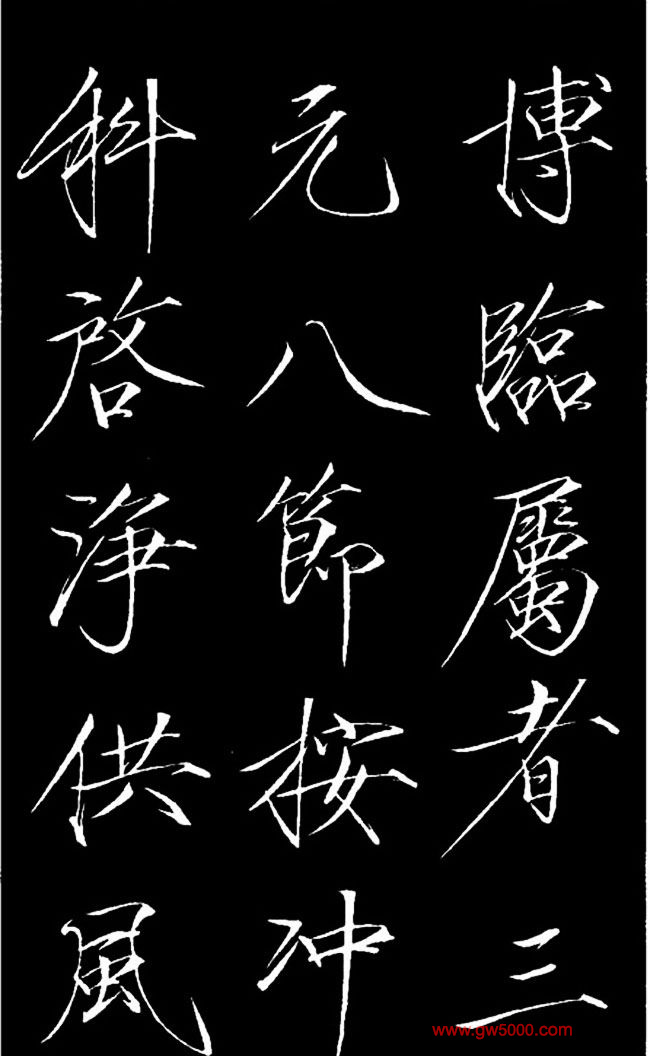 博臨屬者三
元八節按冲
科啓浄供風
www.gw5000.com